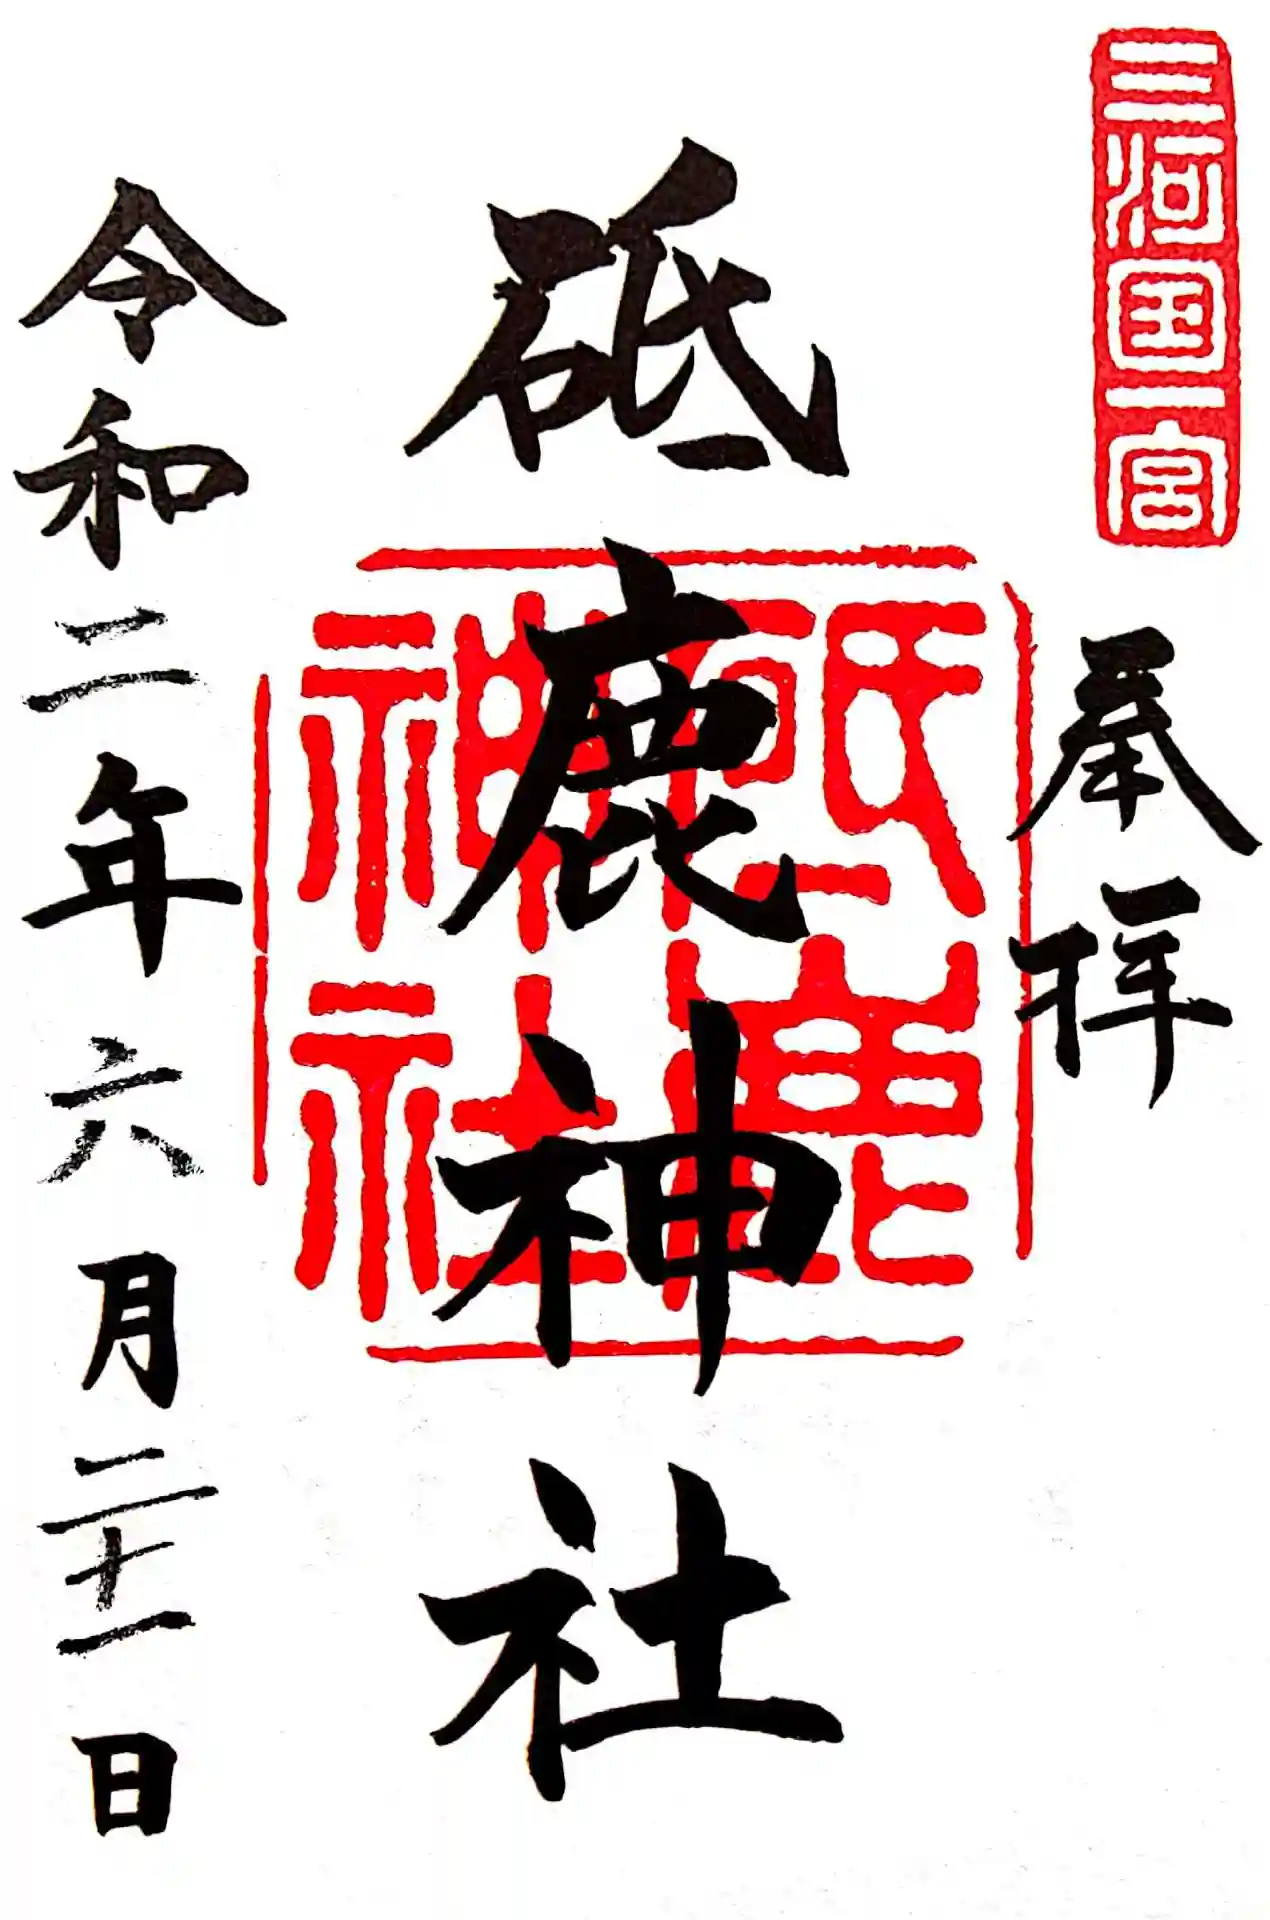 三河国一宮
奉拝
砥鹿神社
砥鹿神社
令和二年六月二十一日